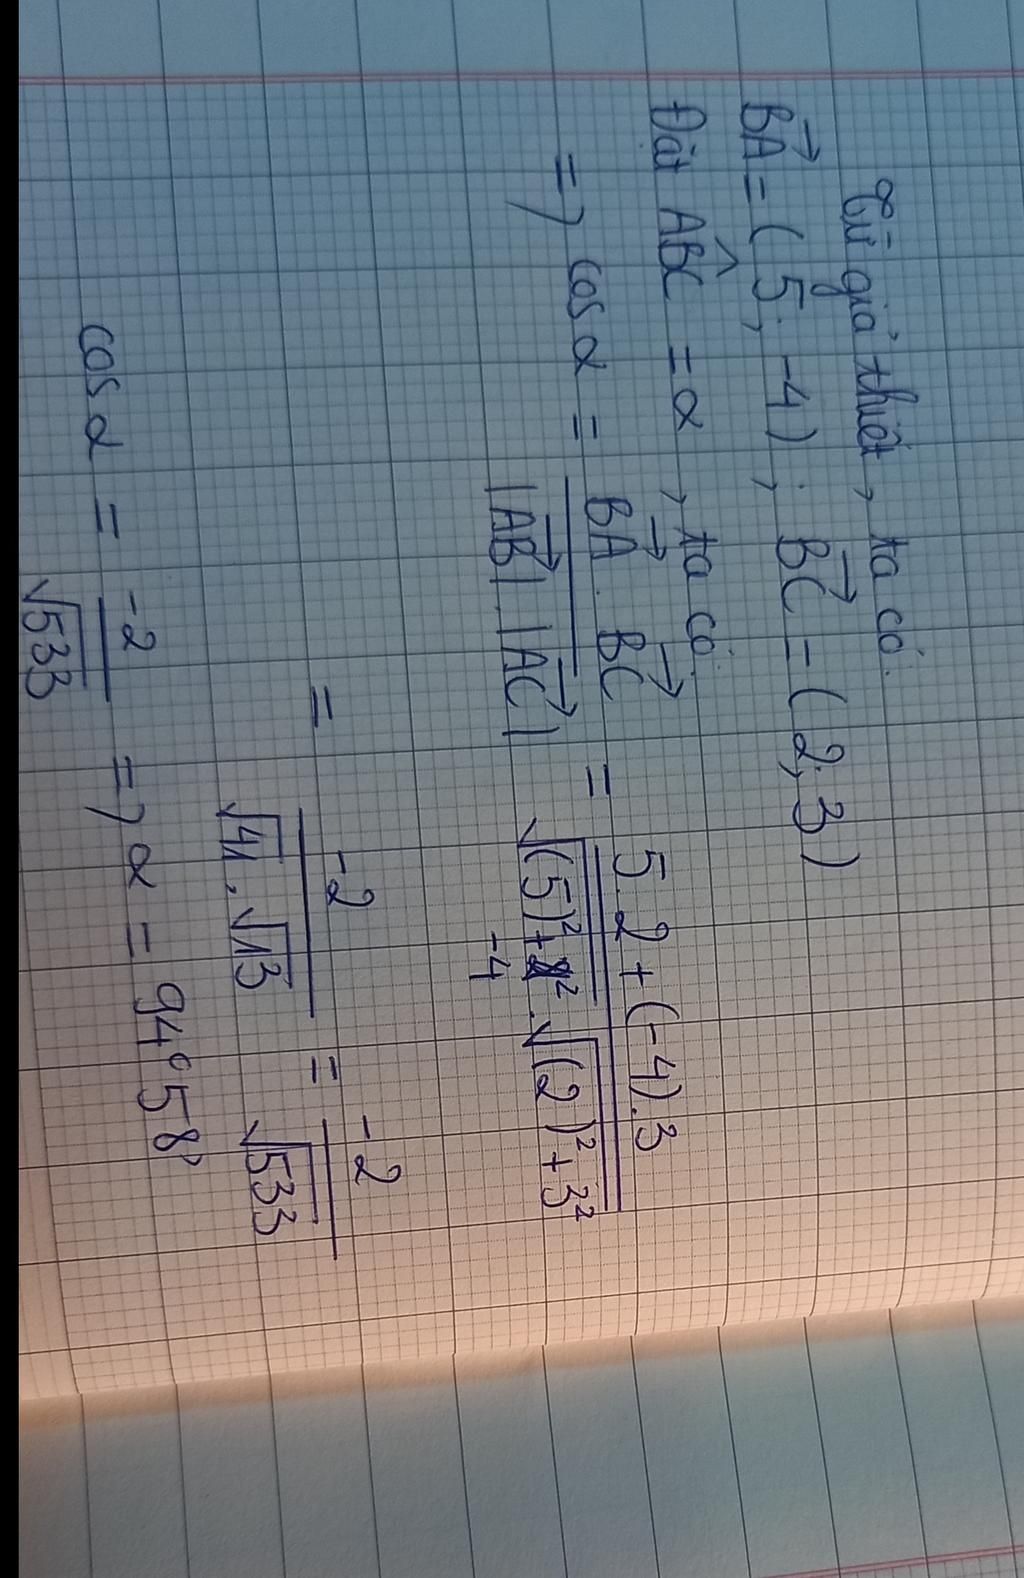 Từ giả thiết, ta có.
$\overrightarrow{BA} = (5; -4)$; $\overrightarrow{BC} = (2; 3)$
Đặt $\widehat{ABC} = \alpha$, ta có
$\Rightarrow \cos \alpha = \frac{\overrightarrow{BA} . \overrightarrow{BC}}{|\overrightarrow{AB}| . |\overrightarrow{AC}|} = \frac{5.2 + (-4).3}{\sqrt{(5)^2 + -4^2} . \sqrt{(2)^2 + 3^2}}$
$= \frac{-2}{\sqrt{41} . \sqrt{13}} = \frac{-2}{\sqrt{533}}$
$\cos \alpha = \frac{-2}{\sqrt{533}} \Rightarrow \alpha = 94°58'$